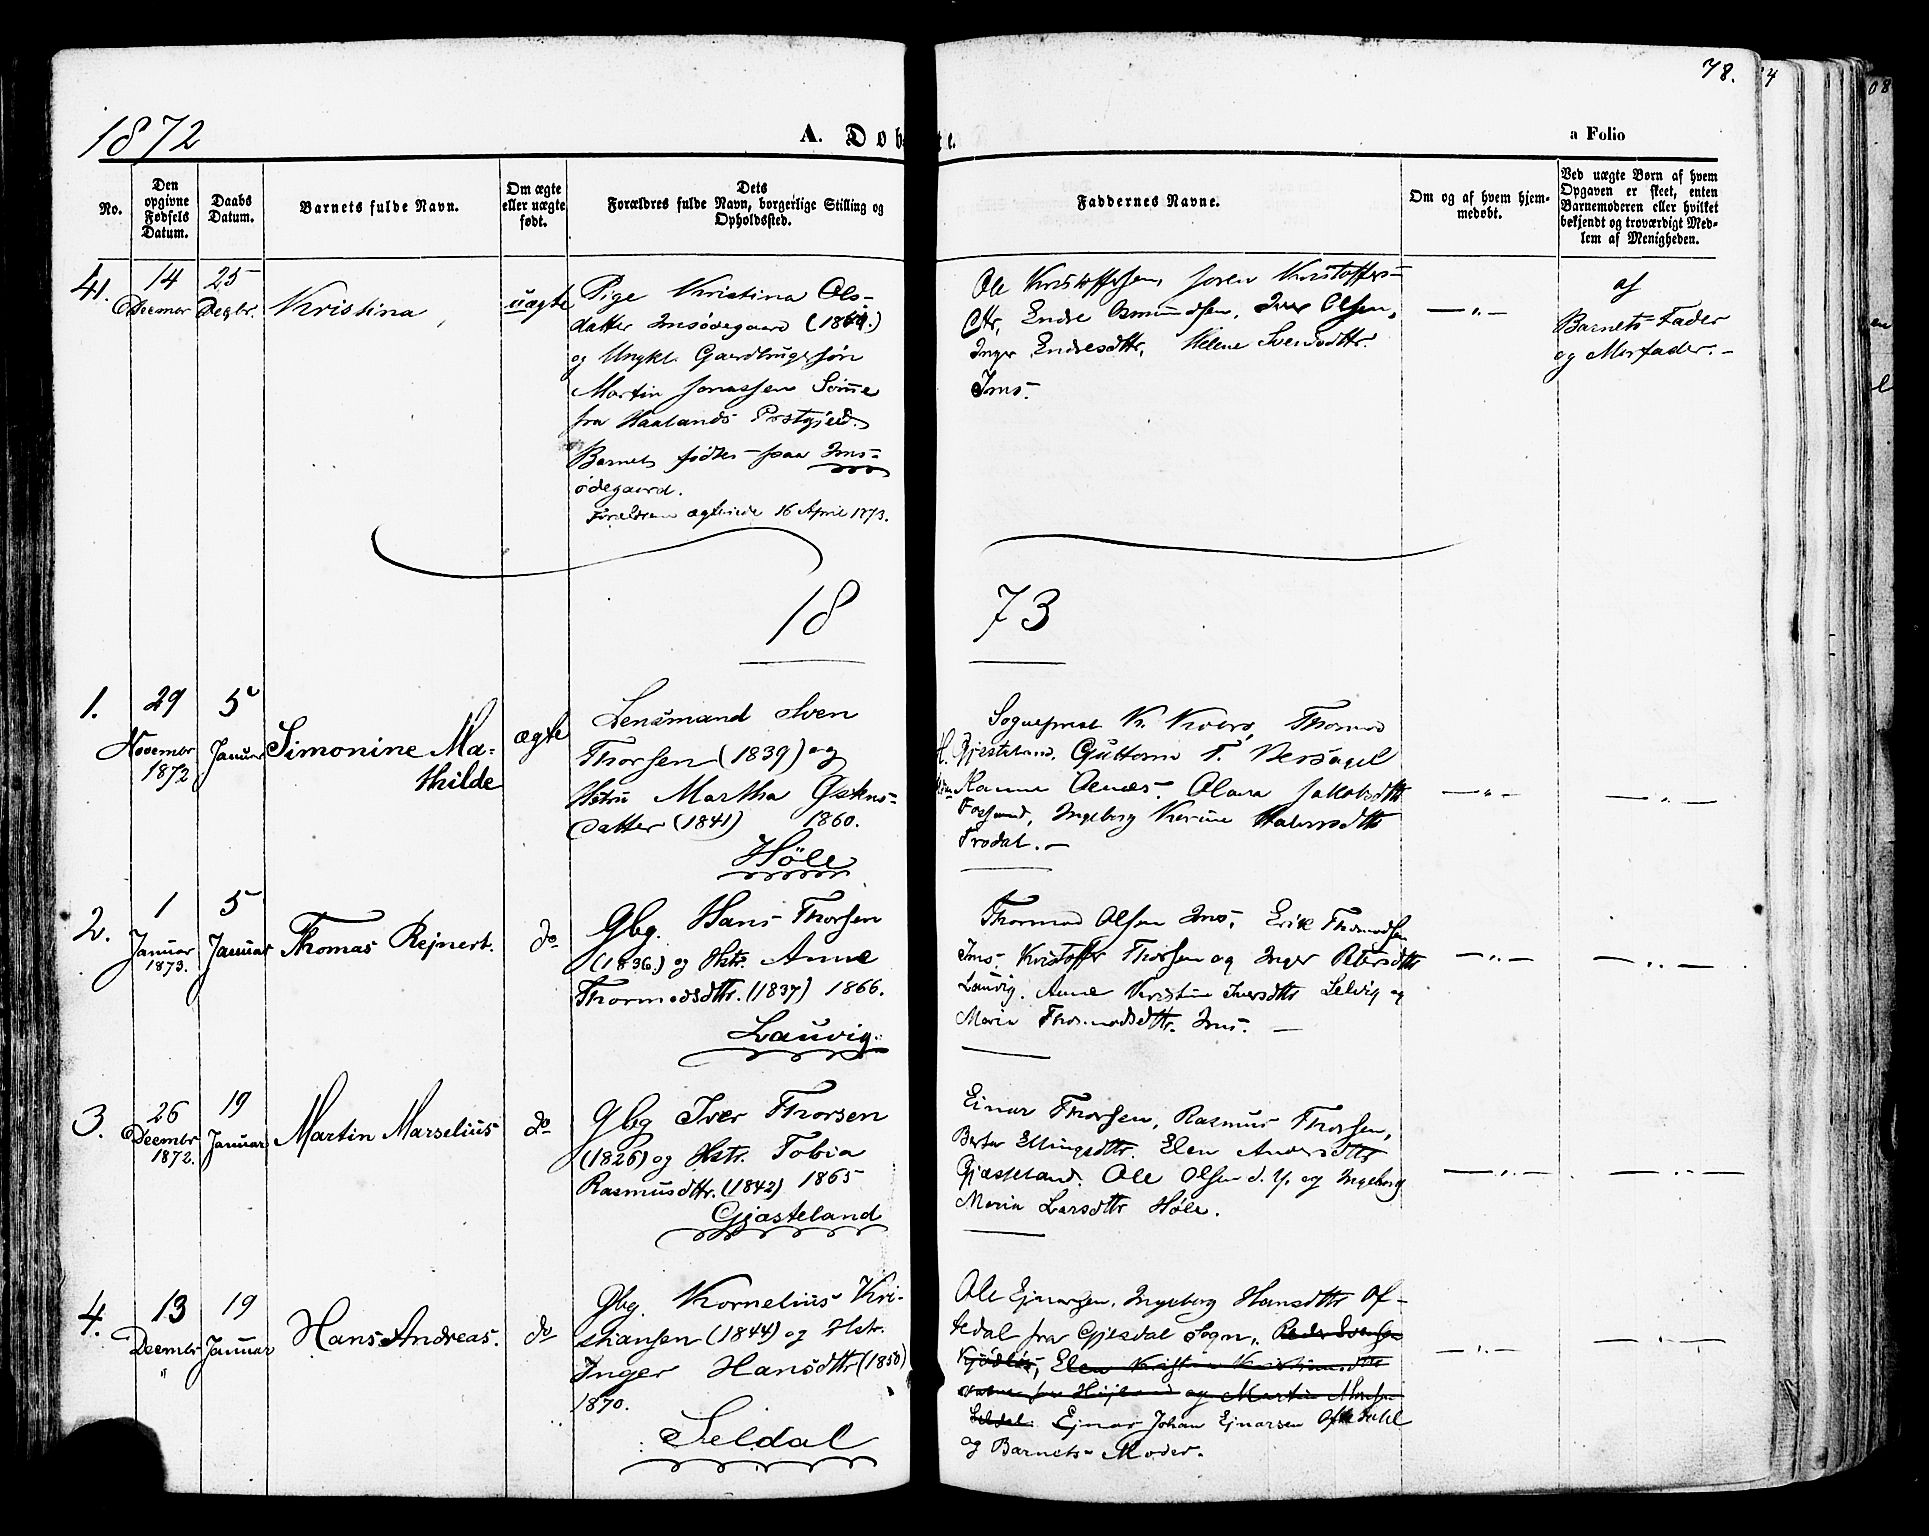 78.
1872
A. Døb
te.
a Folio
No.
Den opgivne Fødsels Datum.
Daabs Datum.
Barnets fulde Navn.
Om ægte eller uægte født.
Dets Forældres fulde Navn, borgerlige Stilling og Opholdssted.
Faddernes Navne.
Om og af hvem hjemmedøbt.
Ved uægte Børn af hvem Opgaven er skeet, enten Barnemoderen eller hvilket bekjendt og troværdigt Medlem af Menigheden.
41.
14 Decmbr
25 Decbr.
Kristina
uægte
Pige Kristina Ols-
datter Imsødegaard
og Ungkl. Gaardbrugersøn
Martin Jonassen Sømme
fra Haalands Prstgjeld.
Barnet fødtes paa Ims-
ødegaard.
Forældrene ægteviede 16 April 1873.
Ole Kristoffersen, Soren Kristoffers-
dtr, Endre Osmundsen, Iver Olsen,
Inger Endresdttr, Helene Svendsdttr
Ims.
— " —
af
Barnets Fader
og Morfader. —
18 73
1.
29 November 1872
5 Januar
Simonine Ma-
thilde
ægte
Lensmand Sven
Thorsen (1839) og
Hstru Martha Østens-
datter (1841) 1860.
Høle
Sogneprest K. Kobro, Thormod
Gjesteland, Guttorm T. Nersagel
Hanne Aenæs, Olava Jakobsdttr
Fossand, Ingeborg Karine Halvorsdttr
Frodal. —
— " —
— " —
2.
1 Januar 1873.
5 Januar
Thomas Rejnert.
do
Gbg. Hans Thorsen
(1836.) og Hstr. Anne
Thormodsdttr. (1837) 1866.
Lauvig.
Thormod Olsen Ims, Erik Thormodsen
Ims, Kristoffer Thorsen og Inger Petersdttr
Lauvig. Anne Kristine Iversdttr Selvig og
Maria Thormodsdttr. Ims. —
— " —
— " —
3.
26 Decembr 1872.
19 Januar
Martin Marselius
do
Gbg Iver Thorsen
(1826) og Hstr. Tobia
Rasmusdttr. (1842) 1865
Gjæsteland
Einar Thorsen, Rasmus Thorsen,
Berta Ellingsdttr. Elen Andersdttr
Gjæsteland. Ole Olsen d. y. og Ingeborg
Maria Larsdttr Høle.
— " —
— " —
4.
13 Decembr "
19 Januar
Hans Andreas.
do
Gbg. Kornelius Kri-
stiansen (1844) og Hstr.
Inger Hansdttr (1850)
1870.
Seldal
Ole Ejnarsen, Ingeborg Hansdttr Of-
tedal fra Gjesdal Sogn,
Ejnar Johan Ejnarsen Oftedahl
og Barnets Moder.
— " —
— " —